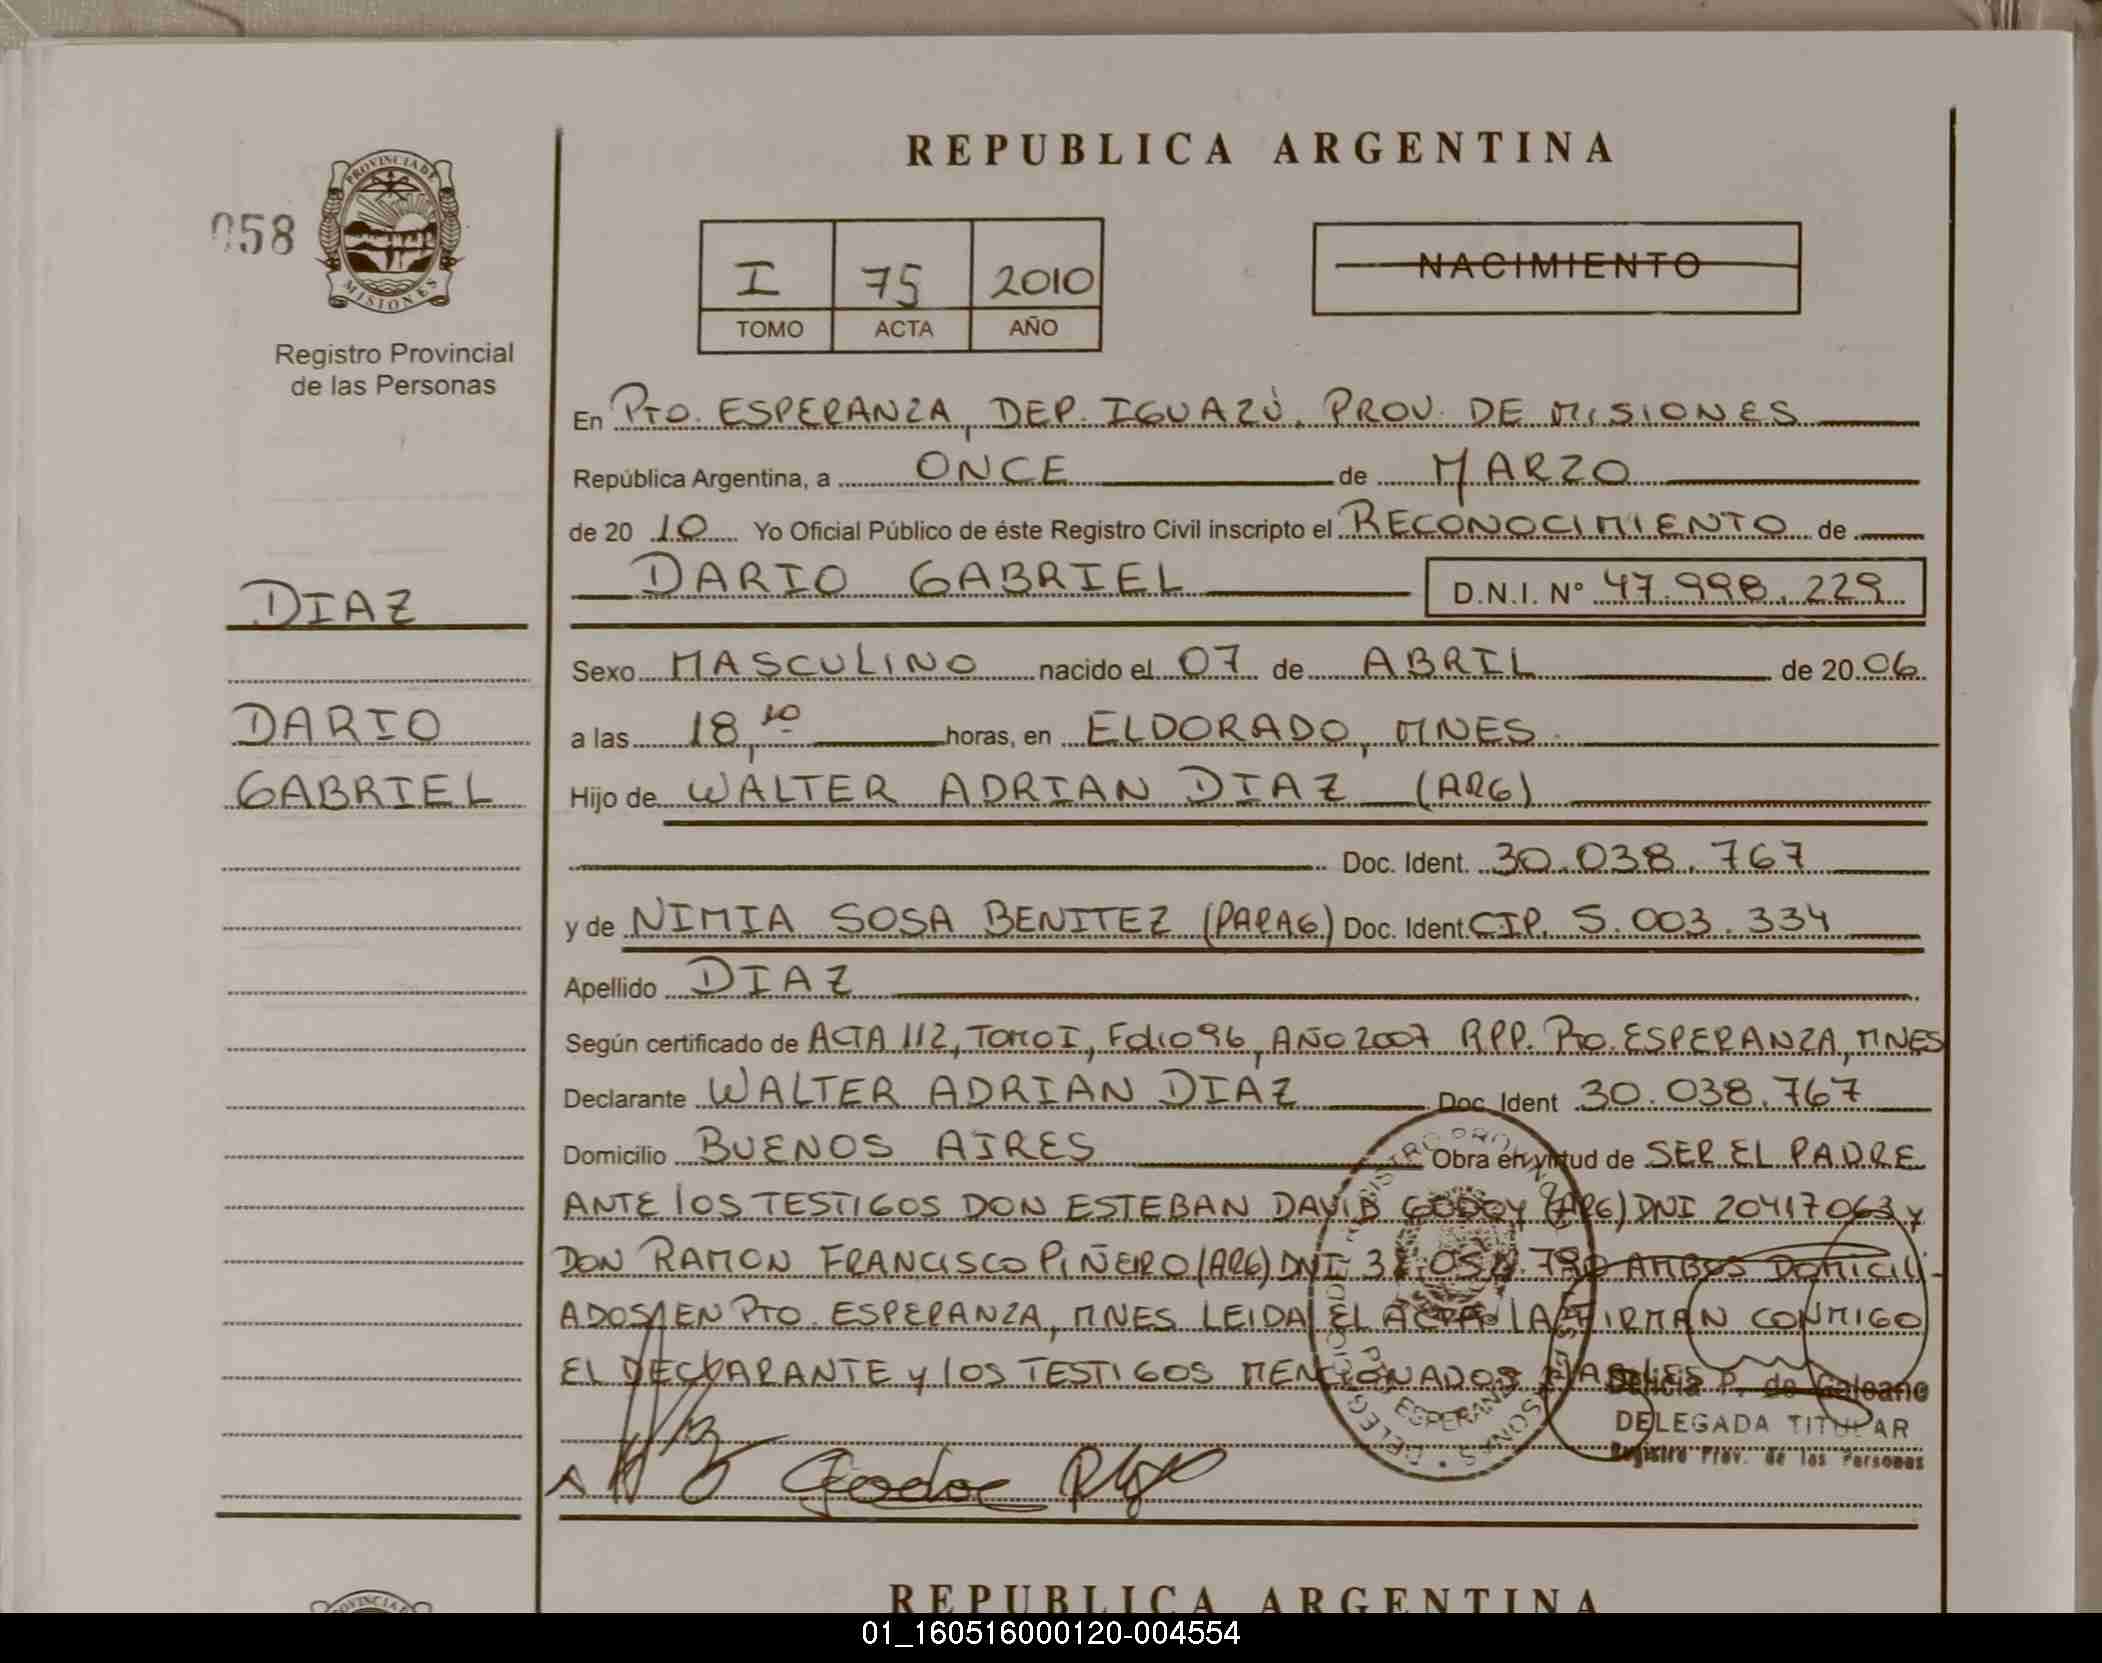 REPUBLICA ARGENTINA
058
PROVINCIA DE
MISIONES
Registro Provincial
de las Personas
I 75 2010
TOMO ACTA AÑO
NACIMIENTO
En PTO. ESPERANZA, DEP. IGUAZÚ, PROV. DE MISIONES
República Argentina, a ONCE de MARZO
de 20 10 Yo Oficial Público de éste Registro Civil inscripto el RECONOCIMIENTO de
DARIO GABRIEL D.N.I. Nº 47.998.229
DIAZ
DARIO
GABRIEL
Sexo MASCULINO nacido el 07 de ABRIL de 20 06
a las 18,10 horas, en ELDORADO, MNES.
Hijo de WALTER ADRIAN DIAZ (ARG)
Doc. Ident. 30.038.767
y de NIMIA SOSA BENITEZ (PARAG) Doc. Ident. CIP. 5.003.334
Apellido DIAZ
Según certificado de ACTA 112, TOMO I, FOLIO 96, AÑO 2007 RPP. PTO. ESPERANZA, MNES
Declarante WALTER ADRIAN DIAZ Doc. Ident 30.038.767
Domicilio BUENOS AIRES Obra en virtud de SER EL PADRE
ANTE LOS TESTIGOS DON ESTEBAN DAVID GODOY (ARG) DNI 20417063 y
DON RAMON FRANCISCO PIÑEIRO (ARG) DNI AMBOS DOMICILI-
ADOS EN PTO. ESPERANZA, MNES LEIDA EL ACTA LA FIRMAN CONMIGO
EL DECLARANTE y LOS TESTIGOS MENCIONADOS
Delicia P. de Galeano
DELEGADA TITULAR
Registro Prov. de las Personas
REPUBLICA ARGENTINA
01_160516000120-004554